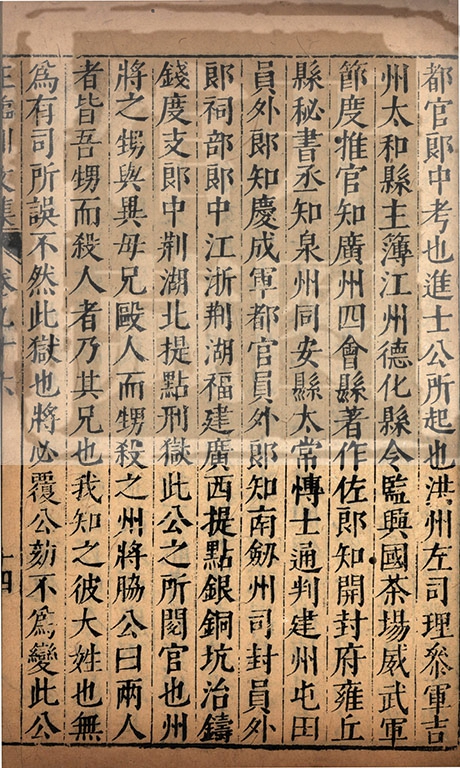 都官郞中考也進士公所起也洪州左司理叅軍吉
州太和縣主簿江州德化縣令監興國茶場威武軍
節度推官知廣州四會縣著作佐郞知開封府雍丘
縣秘書丞知泉州同安縣太常愽士通判建州屯田
員外郞知慶成軍都官員外郞知南劒州司封員外
郞祠部郞中江浙荆湖福建廣西提點銀銅坑冶鑄
錢度支郞中荆湖北提點刑獄此公之所閱官也州
將之甥與異母兄毆人而甥殺之州將脇公曰兩人
者皆吾甥而殺人者乃其兄也我知之彼大姓也無
爲有司所誤不然此獄也將必覆公劾不爲變此公
王臨川文集 卷九十六 十四